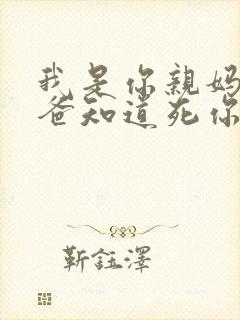 我是你親媽
爸知道死你
靳鈺澤